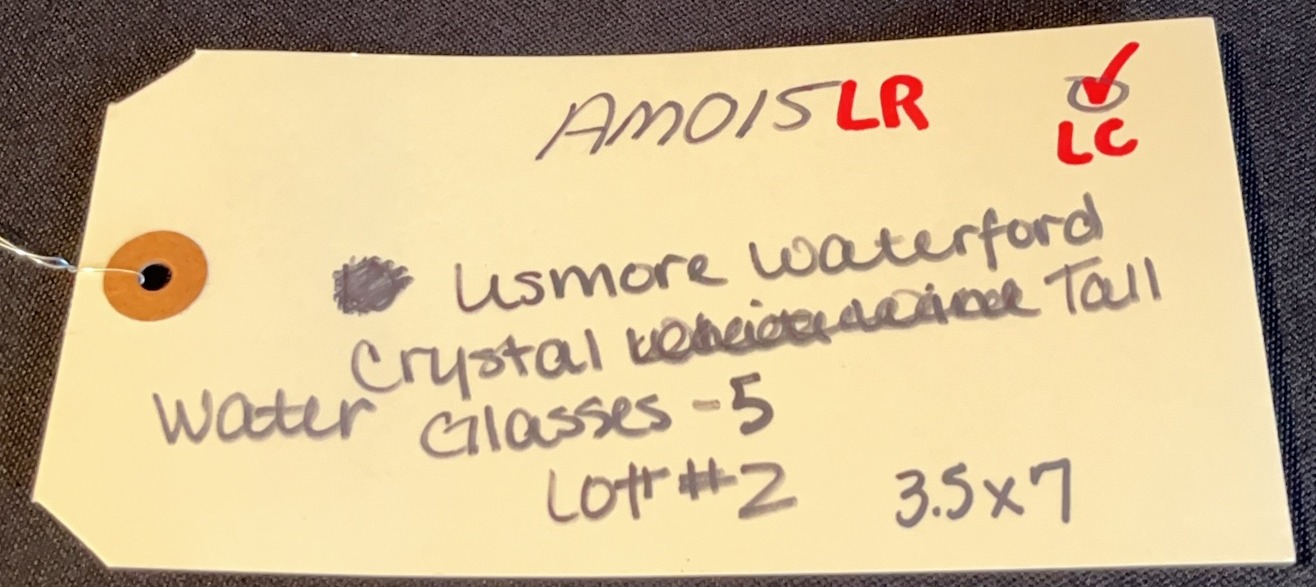 AM015LR ✓
LC
Lismore Waterford
Crystal Tall
Water Glasses - 5
Lot #2 3.5x7